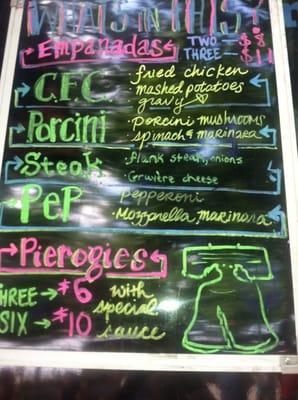 WHATS IN THIS?
Empanadas TWO $8
THREE $11
C.F.C. fried chicken
mashed potatoes
gravy
Porcini porcini mushrooms
spinach & marinara
Steak · flank steak, onions
· Gruvière cheese
PEP pepperoni
· Mozzarella, marinara
Pierogies
THREE → $6 with
special
SIX → $10 sauce